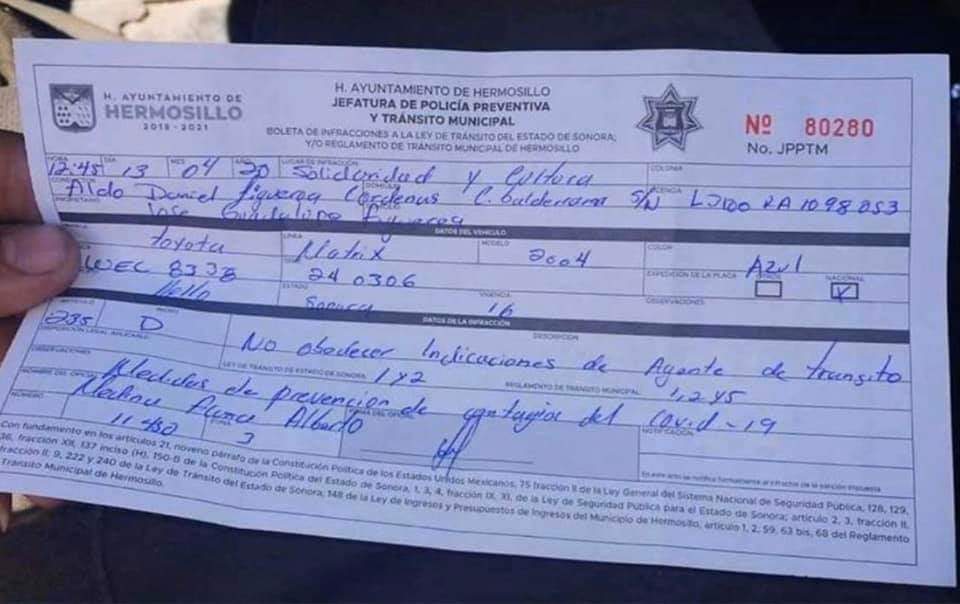 H. AYUNTAMIENTO DE
HERMOSILLO
2018 - 2021
H. AYUNTAMIENTO DE HERMOSILLO
JEFATURA DE POLICÍA PREVENTIVA
Y TRÁNSITO MUNICIPAL
BOLETA DE INFRACCIONES A LA LEY DE TRÁNSITO DEL ESTADO DE SONORA;
Y/O REGLAMENTO DE TRÁNSITO MUNICIPAL DE HERMOSILLO
Nº 80280
No. JPPTM
HORA DÍA MES AÑO LUGAR DE INFRACCIÓN COLONIA
12:45 13 04 20 Solidaridad y Cultura
DOMICILIO LICENCIA
Aldo Daniel Figueroa Cárdenas C. Balderrama S/N
PROPIETARIO
Jose Guadalupe Figueroa
DATOS DEL VEHÍCULO
LÍNEA MODELO COLOR
Toyota Matrix 2004 Azul
EXPEDICIÓN DE LA PLACA NACIONAL
WEC 8338 240306
ESTADO VIGENCIA OBSERVACIONES
Sonora 16
DATOS DE LA INFRACCIÓN
DESCRIPCIÓN
235 D No obedecer Indicaciones de Agente de transito
DISPOSICIÓN LEGAL APLICABLE LEY DE TRÁNSITO DEL ESTADO DE SONORA REGLAMENTO DE TRÁNSITO MUNICIPAL
1 y 2
OBSERVACIONES
Medidas de prevencion de contagios del Covid-19
NOMBRE DEL OFICIAL FIRMA DEL OFICIAL NOTIFICACIÓN
Medina Alberto
NÚMERO
3
Con fundamento en los artículos 21, noveno párrafo de la Constitución Política de los Estados Unidos Mexicanos, 75 fracción II de la Ley General del Sistema Nacional de Seguridad Pública, 128, 129,
36, fracción XII, 137 inciso (H), 150-B de la Constitución Política del Estado de Sonora, 1, 3, 4, fracción IX, XI, de la Ley de Seguridad Pública para el Estado de Sonora; artículo 2, 3, fracción II,
fracción II; 9, 222 y 240 de la Ley de Tránsito del Estado de Sonora; 148 de la Ley de Ingresos y Presupuestos de Ingresos del Municipio de Hermosillo, artículo 1, 2, 59, 63 bis, 68 del Reglamento
Tránsito Municipal de Hermosillo.